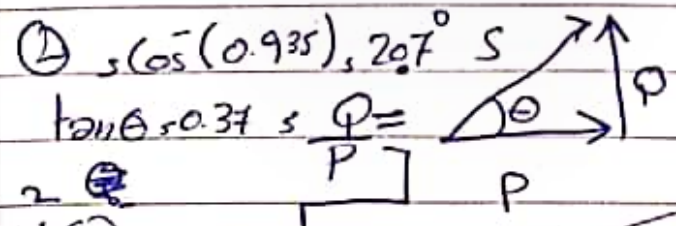 ① , cos⁻(0.935), 20.7° S
tanθ , 0.37 , Q/P = θ Q
2 P